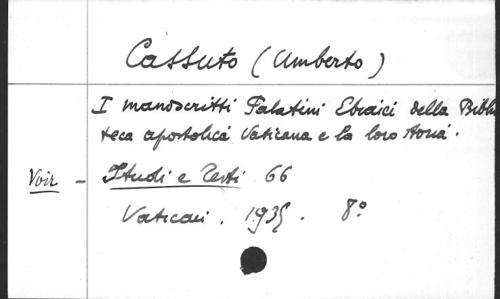 Cassuto (Umberto)
I manoscritti Palatini Ebraici della Biblio
teca apostolica Vaticana e la loro storia.
Voir - Studi e Testi 66
Vatican. 1935. 8°